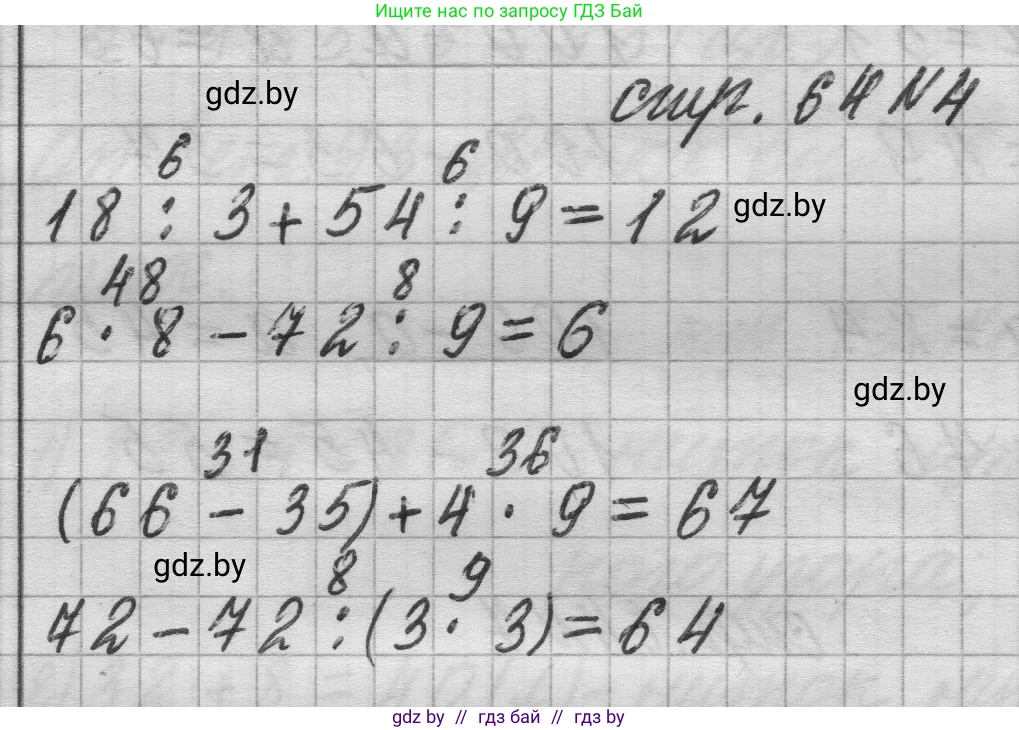 Ищите нас по запросу ГДЗ Бай
gdz.by
стр. 64 №4
6 6
18 : 3 + 54 : 9 = 12 gdz.by
48 8
6 · 8 - 72 : 9 = 6
gdz.by
31 36
(66 - 35) + 4 · 9 = 67
gdz.by 8 9
72 - 72 : (3 · 3) = 64
gdz by // гдз бай // гдз by